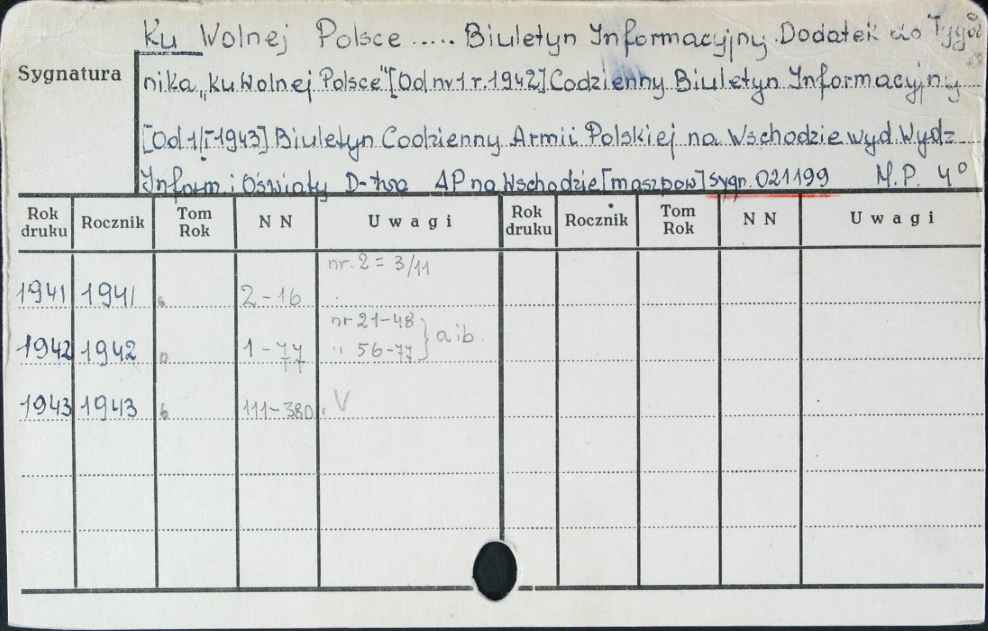 Ku Wolnej Polsce ..... Biuletyn Informacyjny. Dodatek do Tygod
Sygnatura
nika „Ku Wolnej Polsce" [Od nr 1 r. 1942] Codzienny Biuletyn Informacyjny
[Od 1/I-1943] Biuletyn Codzienny Armii Polskiej na Wschodzie wyd. Wydz.
Inform. i Oświaty D-twa AP na Wschodzie [maszpow] sygn. 021199 M.P. 4°
Rok druku Rocznik Tom Rok NN Uwagi Rok druku Rocznik Tom Rok NN Uwagi
nr. 2 = 3/11
1941 1941 2-16
nr 21-48
1942 1942 1-77 " 56-77 } a i b.
77
1943 1943 111-380. V